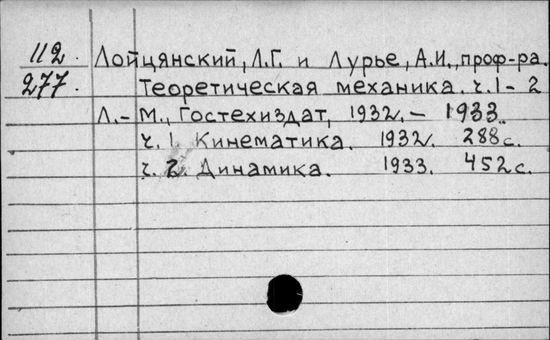 112. Лойцянский, Л.Г. и Лурье, А.И., проф-ра.
277. Теоретическая механика. ч.1-2
Л.-М., Гостехиздат, 1932.-1933.
ч.1. Кинематика. 1932. 288с.
ч.2. Динамика. 1933. 452с.